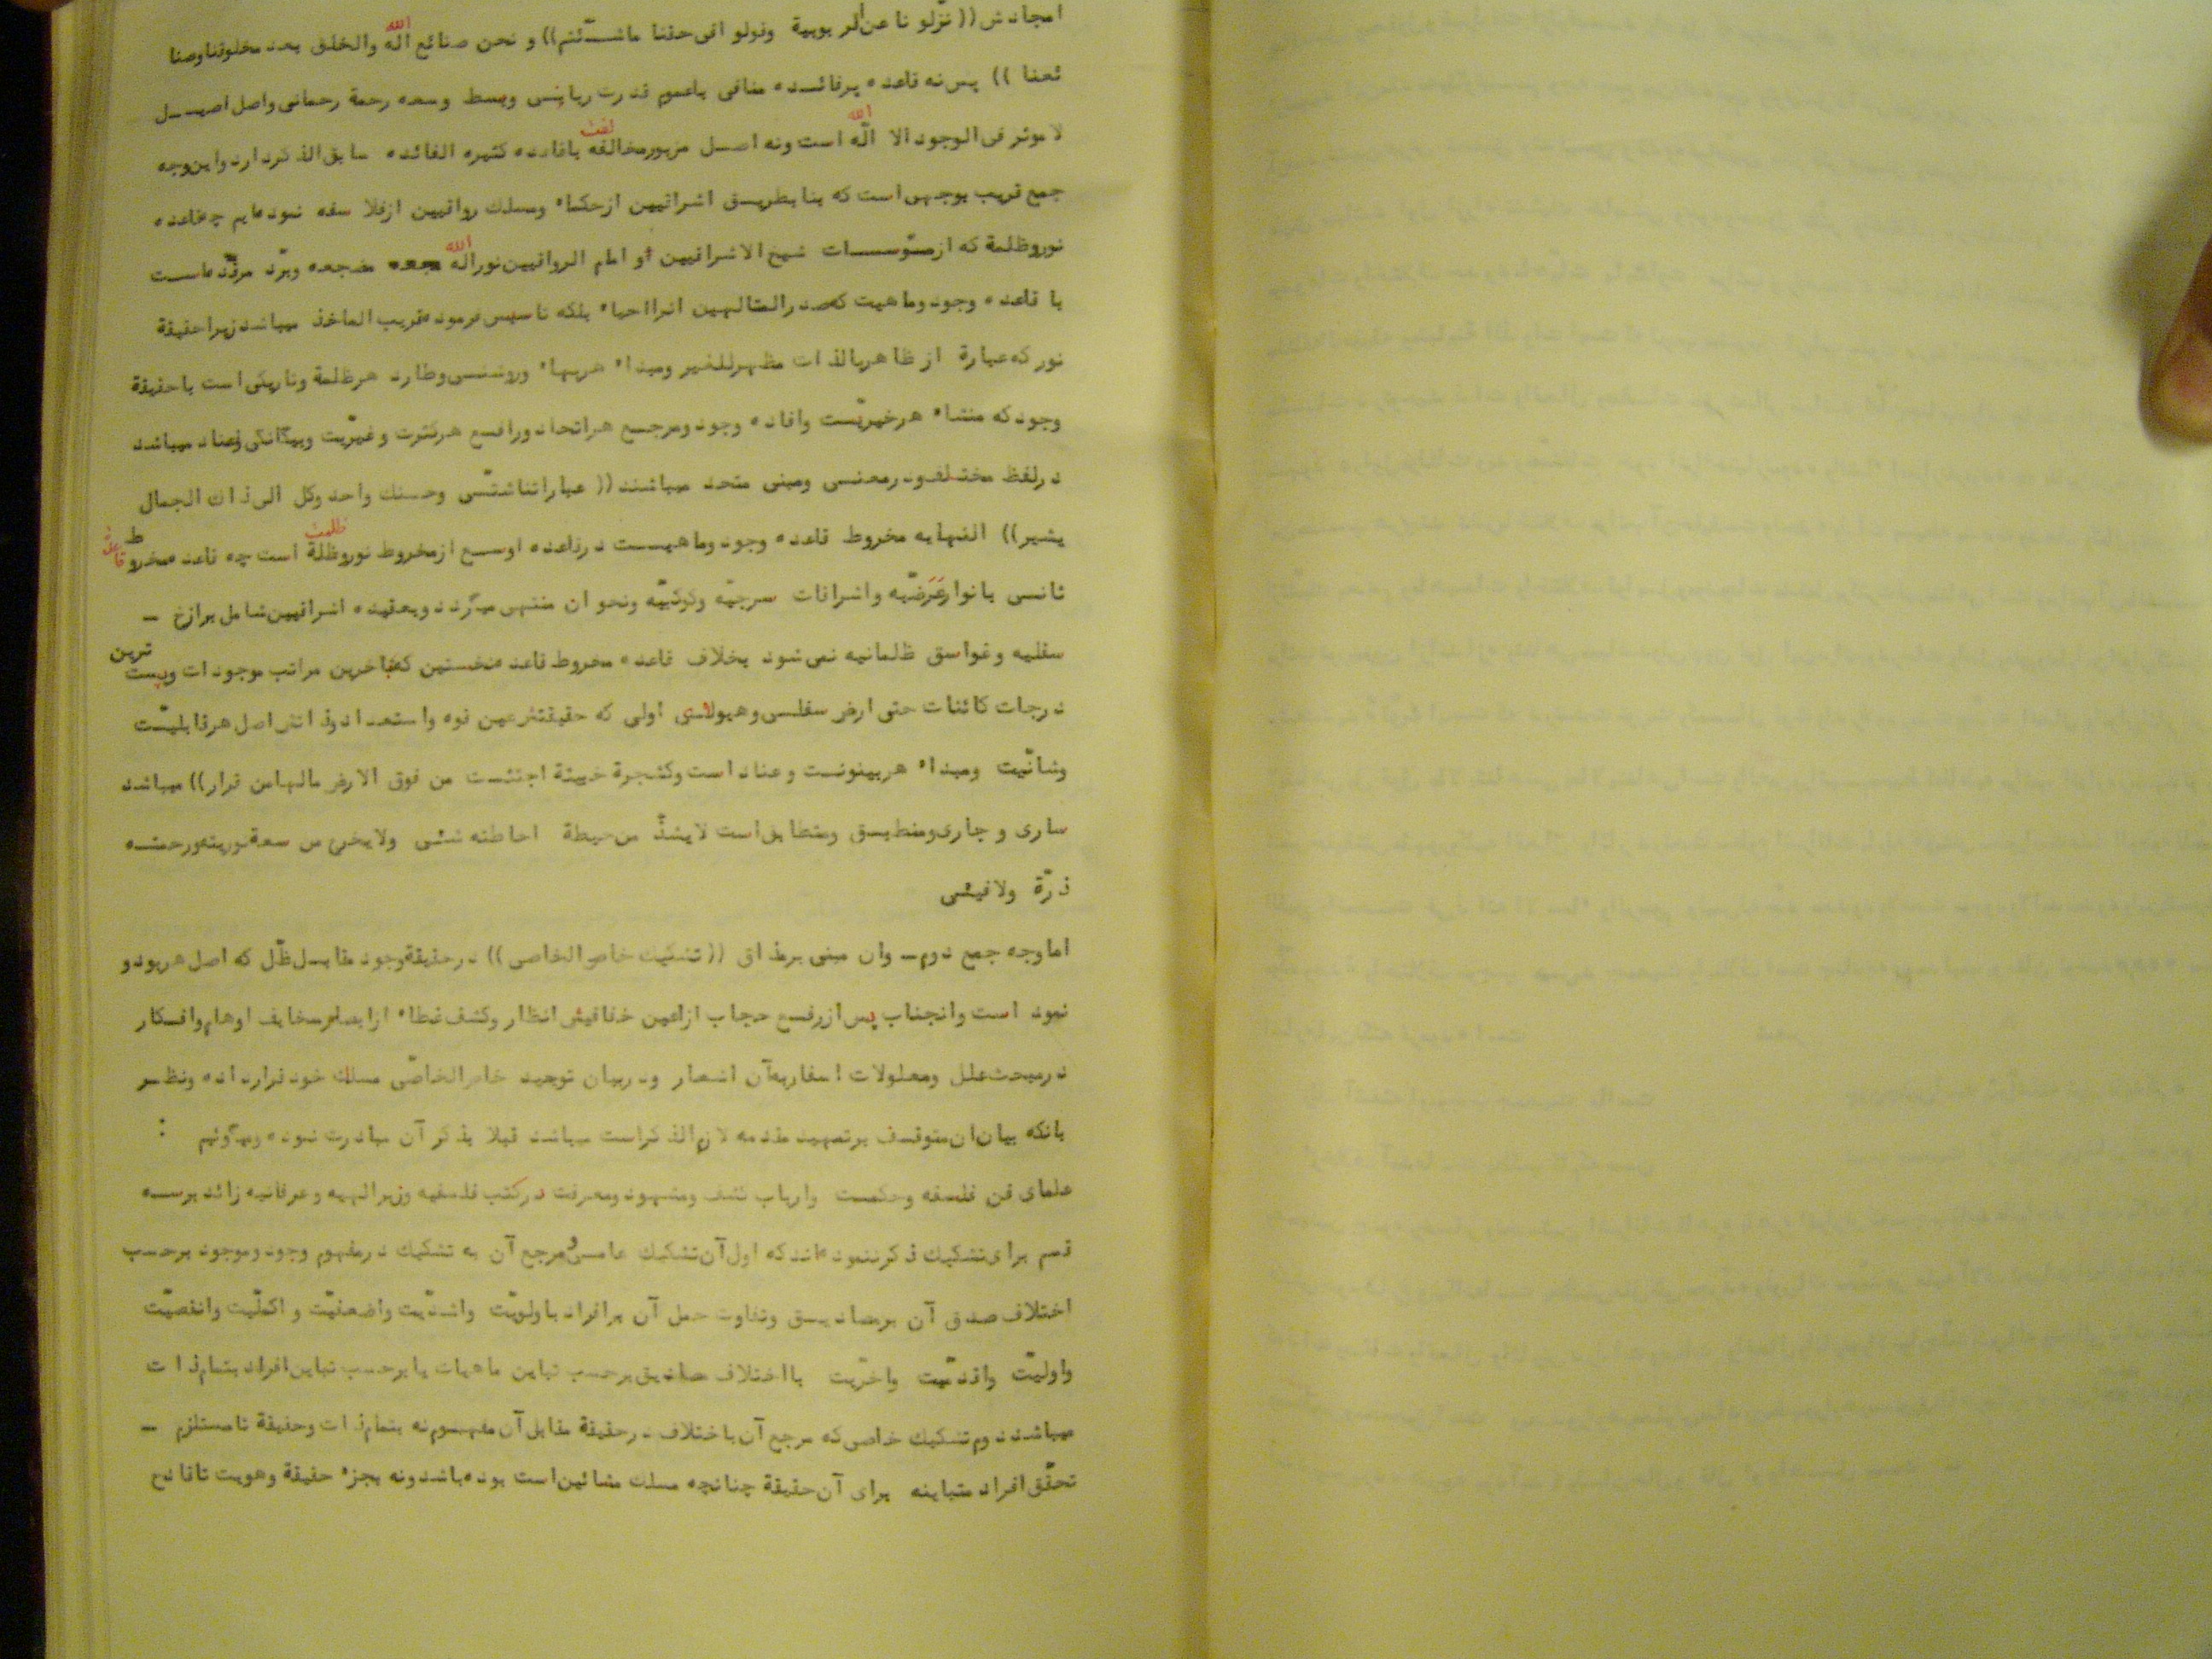 امجادش ((نزّلو نا عن الربوبية وقولو افی حقنا ماشـئتم)) و نحن صنائع الله والخلق بعد مخلوقنا وصنا
ئعنا )) پس نه قاعده پرفائده منافی باعموم قدرت ربانی وبسط وسعه رحمة رحمانی واصل اصیـل
لا موثر فی الوجود الا الله است ونه اصل مزبور مخالفت باقاعده کثیره الفائده سابق الذکر دارد واین وجه
جمع قریب بوجهی است که بنا بطریق اشراقیین ازحکماء ومسلك رواقیین ازفلا سفه نموده ایم چه قاعده
نوروظلمة که ازموسسات شیخ الاشراقیین او امام الرواقیین نورالله مضجعه وبرّد مرقده است
با قاعده وجود وماهیت که صدرالمتالهین انرا احیاء بلکه تاسیس فرموده قریب الماخذ میباشد زیرا حقیقة
نور که عبارة از ظاهر بالذات مظهر للغیر ومبداء هر بهاء وروشنی وطارد هر ظلمة وتاریکی است با حقیقة
وجود که منشاء هر خیریّست وافاده وجود ومرجع هر اتحاد ورافع هر کثرت وغیریّت وبیگانگی وعناد میباشد
در لفظ مختلف ود رمعنی ومبنی متحد میباشند ((عباراتنا شتّی وحسنك واحد وکل الی ذاك الجمال
یشیر)) النهایه مخروط قاعده وجود وماهیـت درقاعده اوسع ازمخروط نوروظلمت است چه قاعده مخروط قاعدۀ
ثانی بانوار عَرَضّیه واشراقات سرجیّه وکوکبیّه ونحو ان منتهی میگردد وبعقیده اشراقیین شامل برازخ -
سفلیه وغواسق ظلمانیه نمی شود بخلاف قاعده مخروط قاعده نخستین که باخرین مراتب موجودات وپست ترین
درجات کائنات حتی ارض سفلی وهیولای اولی که حقیقتش عین قوه واستعداد وذاتش اصل هرقابلیـّت
وشانّیت ومبداء هر بینونـت وعناد است وکشجرة خبیثة اجتثـت من فوق الارض مالها من قرار)) میباشد
ساری و جاری ومنطبق ومتطابق است لا یشذّ من حیطة احاطته شئی ولا یخرج من سعة نوریته ورحمتـه
ذرّة ولا فیئی
اما وجه جمع دوم - وان مبنی بر مذاق ((تشکیك خاص الخاصی)) درحقیقة وجود مقابل ظّل که اصل هربود و
نمود است وانجناب پس ازرفع حجاب ازاعین خفافیش انظار وکشف غطاء ازابصار سخایف اوهام وافکار
درمبحث علل ومعلولات اسفاربه آن اشعار ودربیان توحید خاص الخاصّی مسلك خود قرارداده ونظـر
بانکه بیان ان متوقـف برتمهید مقدمه لازم الذکراست میباشد قبلا بذکر آن مبادرت نموده ومیگوئیم :
علمای فن فلسفه وحکمـت وارباب کشف وشهود ومعرفت درکتب فلسفیه وزبرالهیه وعرفانیه زائد برسـه
قسم برای تشکیك ذکرننموده اند که اول آن تشکیك عامـی ومرجع آن به تشکیك درمفهوم وجود وموجود برحسب
اختلاف صدق آن برمصادیـق وتفاوت حمل آن برافراد باولویّت واشدّیت واضعفیّت و اکملّیت وانقصیّت
واولیّت واقدمّیت واخرّیت بااختلاف مصادیق برحسب تباین ماهیات یا برحسب تباین افراد بتمام ذات
میباشد دوم تشکیك خاصی که مرجع آن باختلاف درحقیقة مقابل آن مفهوم نه بتمام ذات وحقیقة تا مستلزم -
تحقّق افراد متباینه برای آن حقیقة چنانچه مسلك مشائین است بوده باشد ونه بجزء حقیقة وهویت تا قادح